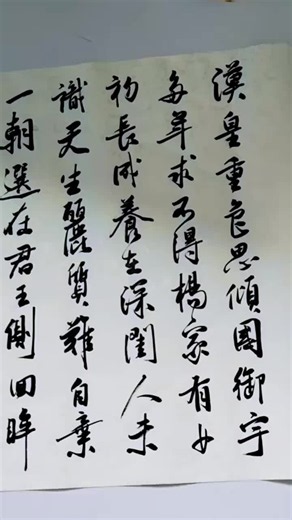 漢皇重色思傾國御宇
多年求不得楊家有女
初長成養在深閨人未
識天生麗質難自棄
一朝選在君王側回眸